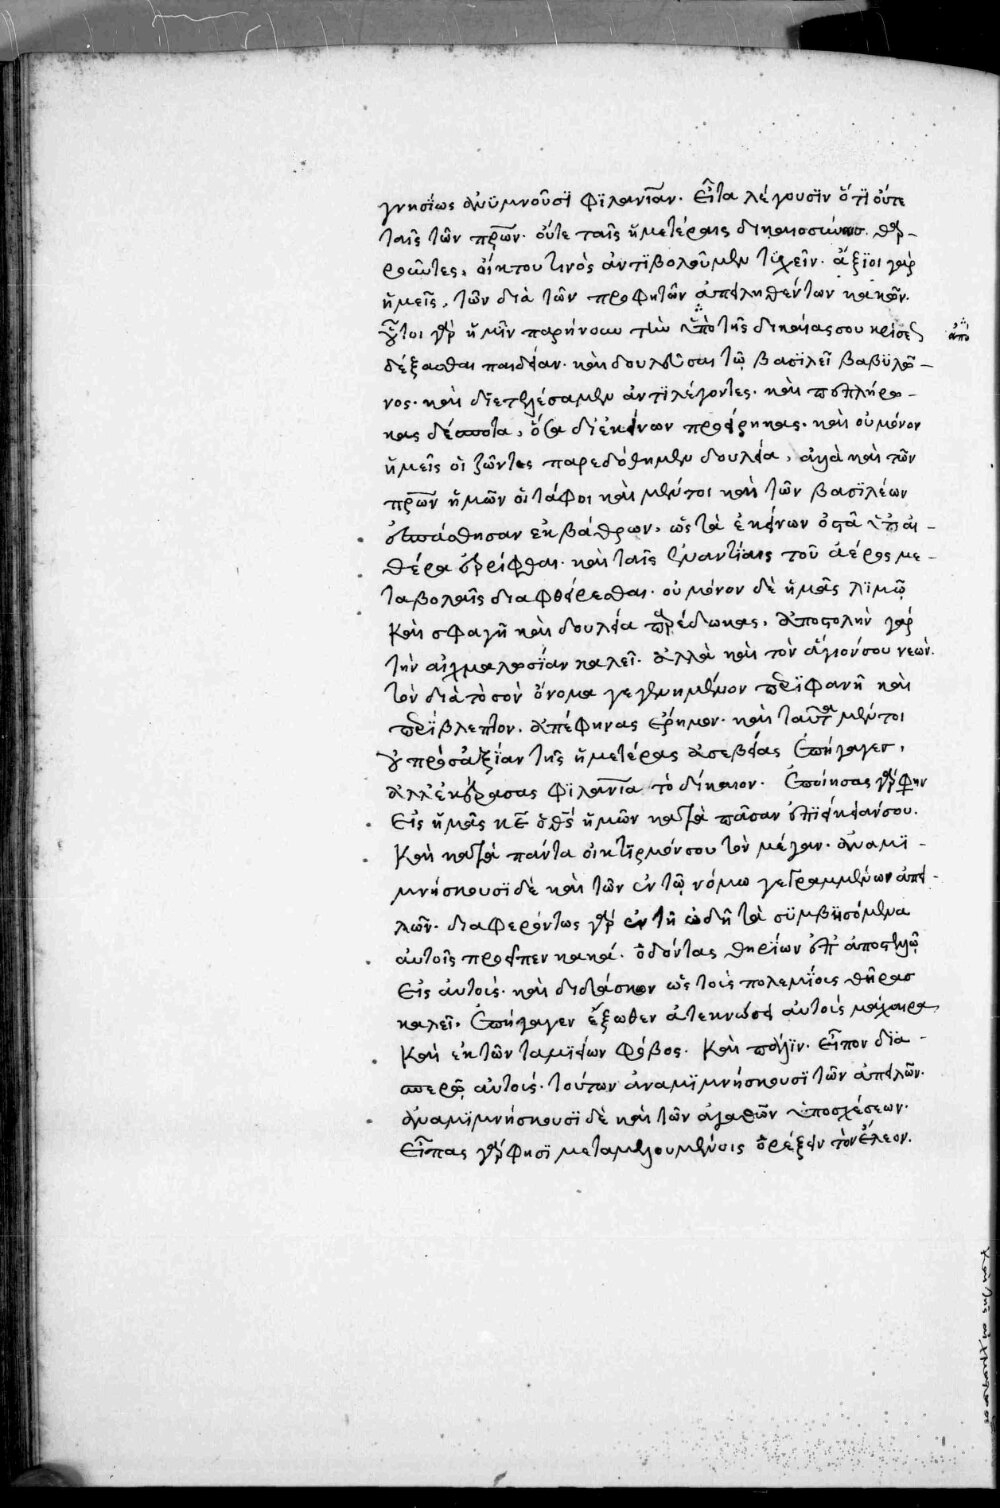 γνησίως ἀνϋμνοῦσϊ φϊλανίαν. Εἶτα λέγουσϊν ὅτϊ οὔτε
ταῖς τῶν πρων. οὔτε ταῖς ἡμετέραις δικαιοσύναις θαρ-
ροῦντες, οἴκτου τινὸς ἀντϊβολοῦμεν τϋχεῖν. ἄξϊοι γὰρ
ἡμεῖς, τῶν διὰ τῶν προφητῶν ἀπειληθέντων κακῶν.
οὗτοι γὰρ ἡμῖν παρῄνουν τὴν ὑπὸ τῆς δικαίας σου κρίσεως
ἀπὸ
δέξασθαι παιδείαν. καὶ δουλεῦσαι τῷ βασϊλεῖ βαβϋλῶ-
νος. καὶ διετελέσαμεν ἀντϊλέγοντες. καὶ πεπλήρω-
κας δέσποτα, ὅσα δι' ἐκείνων προείρηκας. καὶ οὐ μόνον
ἡμεῖς οἱ ζῶντες παρεδόθημεν δουλεία, ἀλλὰ καὶ τῶν
πρων ἡμῶν οἱ τάφοι καὶ μέντοι καὶ τῶν βασϊλέων
ἀνεσπάσθησαν ἐκ βάθρων, ὡς τὰ ἐκείνων ὀστᾶ ὑπαι-
θέρα ἐρρίφθαι. καὶ ταῖς ἐναντίαις τοῦ ἀέρος με-
ταβολαῖς διαφθείρεσθαι. οὐ μόνον δὲ ἡμᾶς λϊμῷ
Καὶ σφαγῇ καὶ δουλεία παρέδωκας, ἀποστολὴν γὰρ
τὴν αἰχμαλωσίαν καλεῖ. ἀλλὰ καὶ τὸν ἅγιόν σου νεών.
τὸν διὰ τὸ σὸν ὄνομα γεγενημένον περιφανῆ καὶ
περίβλεπτον. ἀπέφηνας ἔρημον. καὶ ταῦτα μέντοι
οὐ πρὸς ἀξίαν τῆς ἡμετέρας ἀσεβείας ἐπήγαγες,
ἀλλ' ἐκέρασας φϊλανία τὸ δίκαιον. Ἐποίησας γάρ φησιν
Εἰς ἡμᾶς κε ὁ θς ἡμῶν κατὰ πᾶσαν ἐπιείκειάν σου.
Καὶ κατὰ πάντα οἰκτϊρμόν σου τὸν μέγαν. ἀναμϊ-
μνήσκουσϊ δὲ καὶ τῶν ἐν τῷ νόμω γεγραμμένων ἀπει-
λῶν. διαφερόντως γὰρ ἐν τῇ ᾠδῇ τὰ σϋμβησόμενα
αὐτοῖς προεῖπεν κακά. ὀδόντας θηρίων ἐπαποστελῶ
Εἰς αὐτούς. καὶ διδάσκων ὡς τοὺς πολεμίους θῆρας
καλεῖ. Ἐπήγαγεν ἔξωθεν ἀτεκνώσει αὐτοὺς μάχαιρα
Καὶ ἐκ τῶν ταμϊείων φόβος. Καὶ πάλϊν. Εἶπον δϊα-
σπερῶ αὐτούς. τούτων ἀναμϊμνήσκουσϊ τῶν ἀπειλῶν.
ἀναμϊμνήσκουσϊ δὲ καὶ τῶν ἀγαθῶν ὑποσχέσεων.
Εἶπας γὰρ φησϊ μεταμελουμένοις ὀρέξειν τὸν ἔλεον.